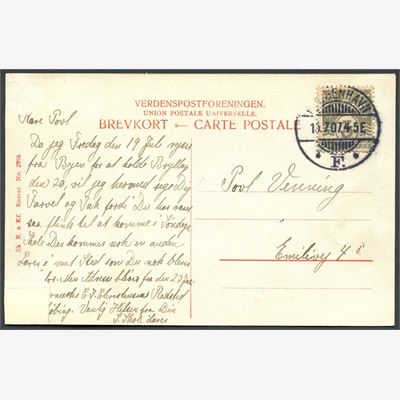 VERDENSPOSTFORENINGEN.
UNION POSTALE UNIVERSELLE.
BREVKORT — CARTE POSTALE
KJØBENHAVN
13.7.07.4-5E
F.
Sk. B. & Kf. Eneret No. 2906
Kære Povl
Da jeg Fredag den 19 Juli rejser
fra Byen for at holde Bryllup
den 20, vil jeg herved sige Dig
Farvel og Tak fordi Du har været
saa flink til at komme i Søndags-
skole. Der kommer nok en anden
Lærer i mit Sted som Du nok bliver
den 20 Juli
E. V. Christensen
Venlig Hilsen fra Din
S. Skole Lærer
Povl Venning
Emilievej 4